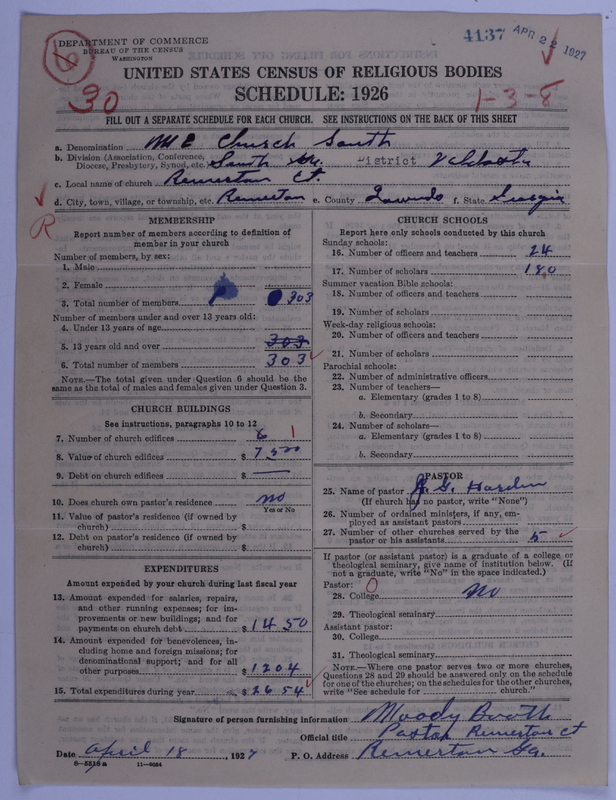 DEPARTMENT OF COMMERCE
BUREAU OF THE CENSUS
WASHINGTON
4137 APR 22 1927
UNITED STATES CENSUS OF RELIGIOUS BODIES
SCHEDULE: 1926
30
1-3-8
FILL OUT A SEPARATE SCHEDULE FOR EACH CHURCH. SEE INSTRUCTIONS ON THE BACK OF THIS SHEET
a. Denomination M E Church South
b. Division (Association, Conference, Diocese, Presbytery, Synod, etc. South Ga. District Valdosta
c. Local name of church Remerton Ct.
d. City, town, village, or township, etc. Remerton e. County Lowndes f. State Georgia
R
MEMBERSHIP
Report number of members according to definition of
member in your church
Number of members, by sex:
1. Male
2. Female
3. Total number of members 303
Number of members under and over 13 years old:
4. Under 13 years of age
5. 13 years old and over 303
6. Total number of members 303
NOTE.—The total given under Question 6 should be
same as the total of males and females given under Question 3.
CHURCH BUILDINGS
See instructions, paragraphs 10 to 12
7. Number of church edifices 6 1
8. Value of church edifices $ 7500
9. Debt on church edifices $ —
10. Does church own pastor's residence no
Yes or No
11. Value of pastor's residence (if owned by
church) $
12. Debt on pastor's residence (if owned by
church) $
EXPENDITURES
Amount expended by your church during last fiscal year
13. Amount expended for salaries, repairs,
and other running expenses; for im-
provements or new buildings; and for
payments on church debt $ 1450
14. Amount expended for benevolences, in-
cluding home and foreign missions; for
denominational support; and for all
other purposes $ 1204
15. Total expenditures during year $ 2654
CHURCH SCHOOLS
Report here only schools conducted by this church
Sunday schools:
16. Number of officers and teachers 24
17. Number of scholars 180
Summer vacation Bible schools:
18. Number of officers and teachers
19. Number of scholars
Week-day religious schools:
20. Number of officers and teachers
21. Number of scholars
Parochial schools:
22. Number of administrative officers
23. Number of teachers—
a. Elementary (grades 1 to 8)
b. Secondary
24. Number of scholars—
a. Elementary (grades 1 to 8)
b. Secondary
PASTOR
25. Name of pastor J. G. Harden
(If church has no pastor, write "None")
26. Number of ordained ministers, if any, em-
ployed as assistant pastors
27. Number of other churches served by the
pastor or his assistants 5
If pastor (or assistant pastor) is a graduate of a college or
theological seminary, give name of institution below. (If
not a graduate, write "No" in the space indicated.)
Pastor: 0
28. College no
29. Theological seminary
Assistant pastor:
30. College
31. Theological seminary
NOTE.—Where one pastor serves two or more churches,
Questions 28 and 29 should be answered only on the schedule
for one of the churches; on the schedules for the other churches,
write "See schedule for church."
Signature of person furnishing information Moody Booth
Official title Pastor Remerton ct
Date April 18, 1927 P. O. Address Remerton Ga.
8-5518a 11-9064